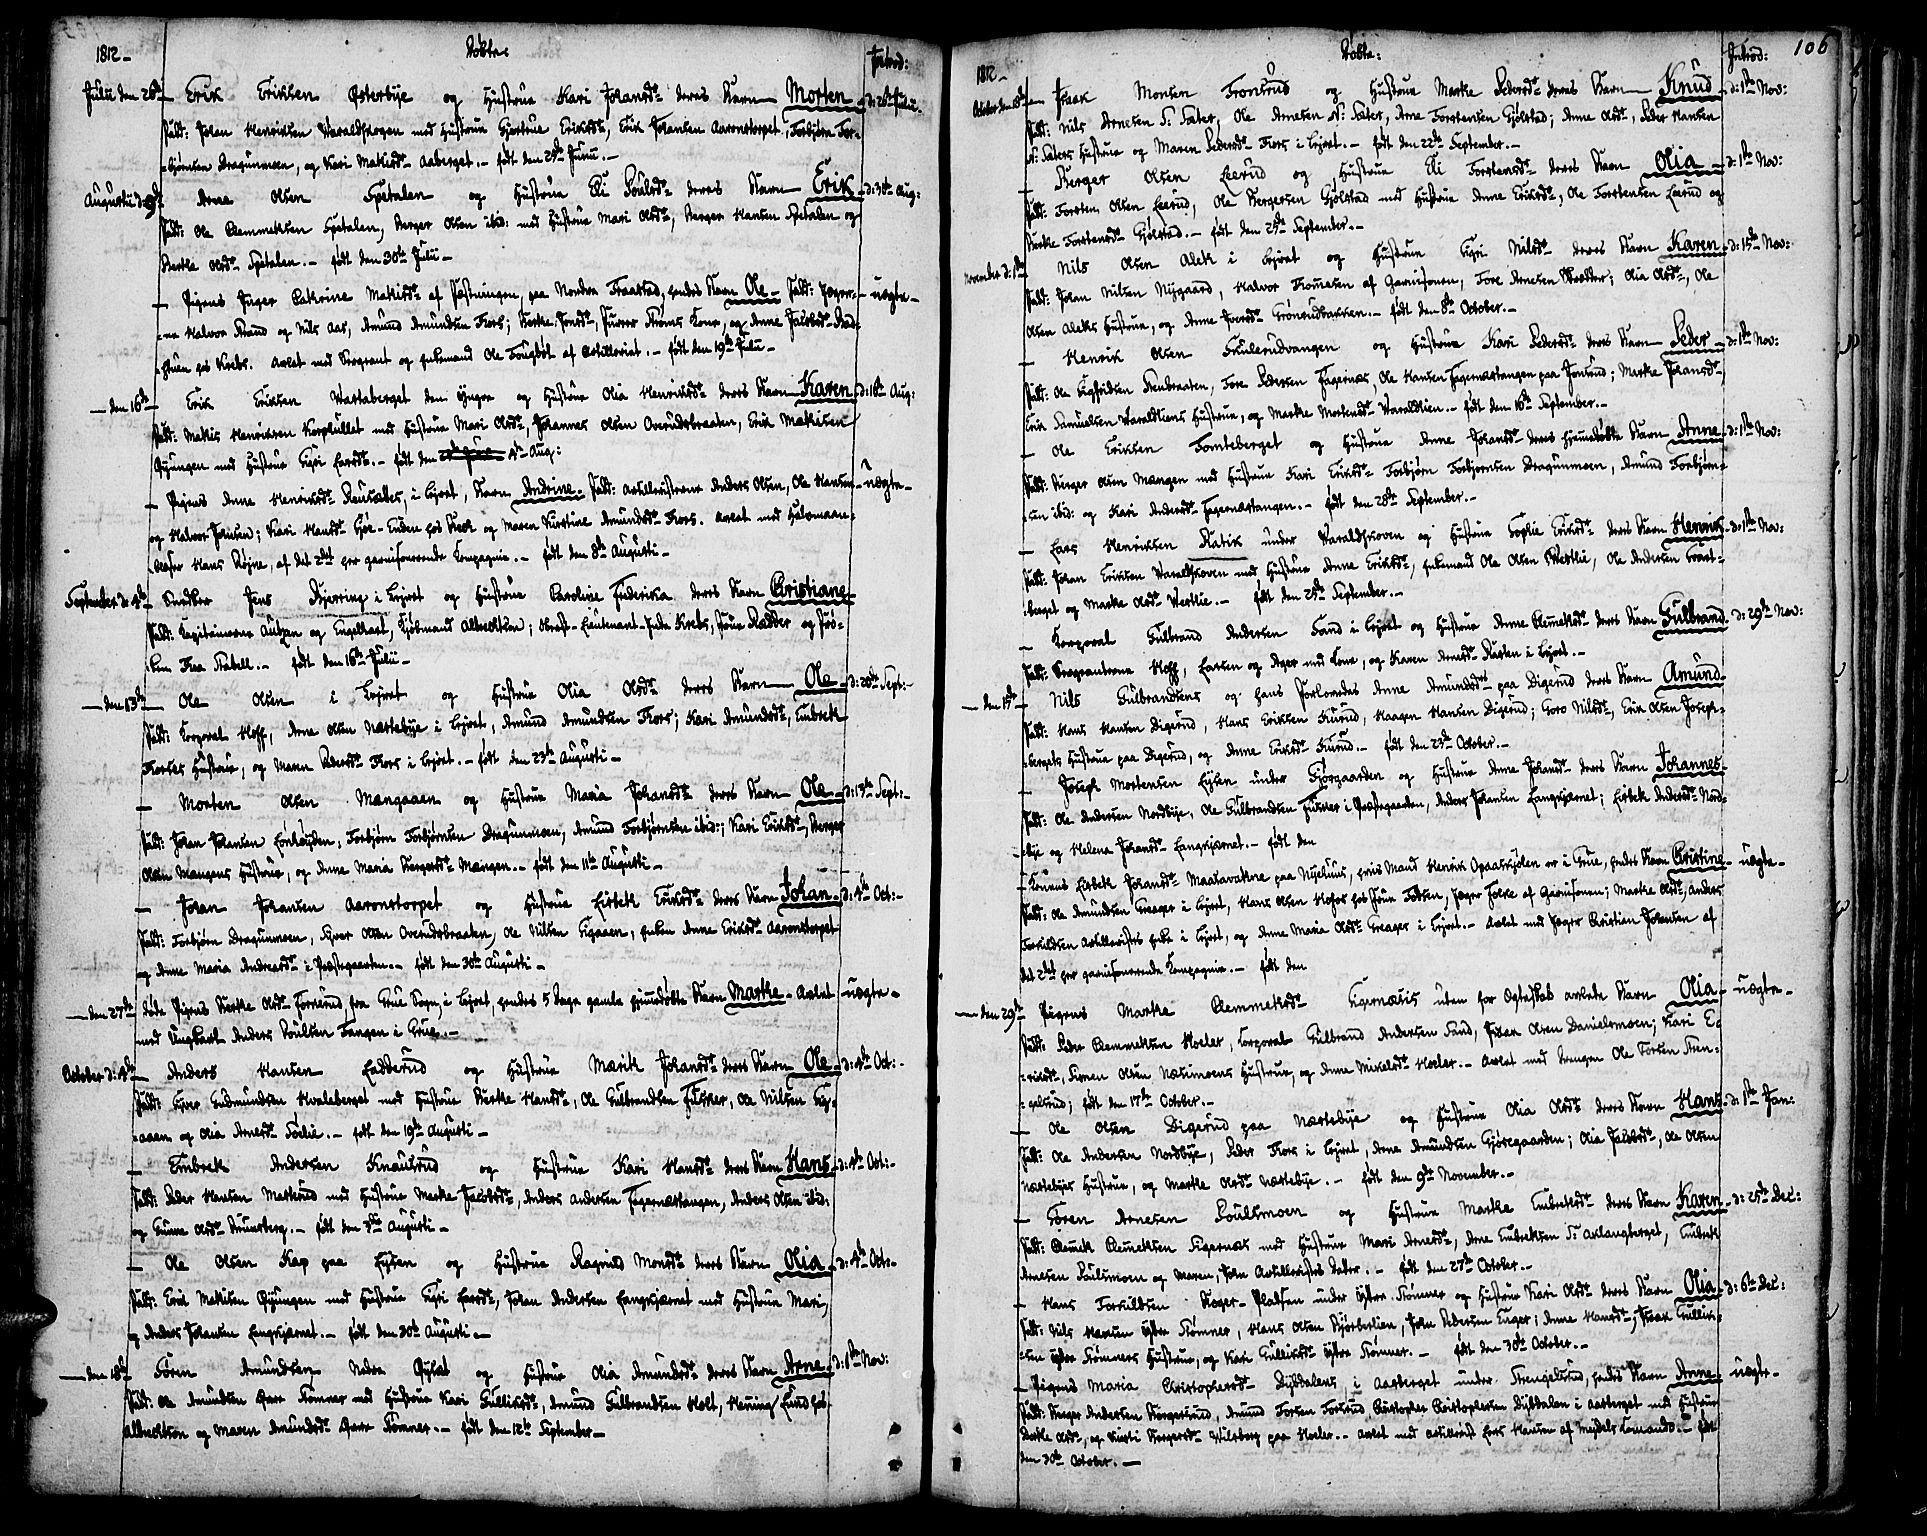 1812 -
Døbte:
Introd:
Julii den 26de - Erik Eriksen Østerbye og Hustrue Kari Johansdr deres Barn Morten - d: 26de Julii
Fadd: Johan Henriksen Varaldskogen med Hustrue Gjertrue Eriksdr, Erik Johansen Aaronstorpet, Torbjørn Tor-
-bjørnsen Dragunmoen, og Kari Mathisdr Aaberget. - født den 25de Junii. -
Augustii d: 9de Arne Olsen Spetalen og Hustrue Eli Poulsdr deres Barn Erik - d: 30te Aug:
Fadd: Ole Clemmetsen Spetalen, Berger Olsen ibid: med Hustrue Mari Olsdr, Berger Hansen Spetalen og
Berthe Olsdr Spetalen. - født den 30te Julii -
- Pigens Inger Cathrine Mathisdr af Fæstningen, paa Nordre Fraastad, hendes Barn Ole - Fadd: Jæger- - uægte -
-ne Halvor Strand og Nils Aas, Amund Amundsen Fors; Berthe Jonsdr, Furer Strøms Kone, og Anne Jacobsdr Rad-
-stuen hos Krebs. Avlet med Sergeant og Enkemand Ole Tougbøl af Artilleriet. - født den 19de Julii -
- den 16de - Erik Eriksen Vestaberget den Yngre og Hustrue Olia Henriksdr deres Barn Karen d: 16de Aug:
Fadd: Mathis Henriksen Korphullet med Hustrue Mari Olsdr, Johannes Olsen Overudsbraaten, Erik Mathisen
Øyungen med Hustrue Sigri Larsdr. - født den 4de Aug:
- Pigens Anne Henriksdr Rensætter, i Leyret, Barn Andrine. Fadd: Artilleristerne Anders Olsen, Ole Hansen - uægte -
og Halvor Johnsen; Kari Hansdr hos Beck og Maren Kirstine Amundsdr Fors. avlet med Halvmaan-
-blæser Hans Røgne, af det 2det her garnisonerende Compagnie. - født den 8de Augusti -
September d: 4de - Snedker Jens Kjerring i Leyret og Hustrue Caroline Friderika deres Barn Christiane -
Fadd: Capitainerne og Engelhart, Kjøbmand Albrechtson; Obrist-Lieutenant-Inde Krebs, Frue Rædder og Frø-
-ken Fra Stabell. - født den 16de Julii -
- den 13de - Ole Olsen i Leyret og Hustrue Olia Olsdr deres Barn Ole - d: 20de Sept: -
Fadd: Corporal Hoff, Arne Olsen Næstebye i Leyret, Amund Amundsen Fors; Kari Amundsdr, Embrek
Hustrue, og Maren Pedersdr Fors i Leyret. - født den 23de Augusti -
- Morten Olsen Mængaaen og Hustrue Maria Johansdr deres Barn Ole - d: 13de Sept: -
Fadd: Johan Johansen Lønhøyden, Torbjørn Torbjørnsen Dragunmoen, Amund Torbjørnsen ibid:; Kari Eriksdr, Berger
Olsen Mængens Hustrue, og Anne Maria Bergersdr Mængen. - født den 11te Augusti -
- Johan Johansen Aaronstorpet og Hustrue Lisbek Eriksdr deres Barn Johan - d: 4de Oct: -
Fadd: Torbjørn Dragunmoen, Iver Olsen Overudsbraaten, Ole Nilsen Sigaaen, Enken Anne Eriksdr Aaronstorpet
og Anne Maria Andreasdr i Præstegaarden. - født den 30te Augusti -
- den 27de døde Pigens Berthe Olsdr, fra Grue Sogn, i Leyret, hendes 5 Dage gamle hjemmedøbte Barn Marthe - avlet - uægte -
med Ungkarl Anders Poulsen Tangen i Grue. -
October d: 4de - Anders Hansen Ladderud og Hustrue Marik Johansdr deres Barn Ole - d: 4de Oct: -
Fadd: Iver Gudmundsen Hvaleberget med Hustrue Berthe Hansdr, Ole Gulbrandsen Fisker, Ole Nilsen Sig-
-aaen og Olia Arnesdr Sølie. - født den 19de Augusti -
- Embrek Andersen Knausrud og Hustrue Kari Hansdr deres Barn Hans - d: 4de Oct: -
Fadd: Peder Hansen Masterud med Hustrue Marthe Jacobsdr, Anders Andersen Fagernæstangen, Anders Olsen ibid:
og Gunne Olsdr Brunsberg. - født den 3die Augusti -
- Ole Olsen Kap paa Eysen og Hustrue Ragnild Monsdr deres Barn Olia - d: 4de Oct: -
Fadd: Erik Mathisen Øyungen med Hustrue Sigri Larsdr, Johan Andersen Langkjærnet med Hustrue Mari,
og Anders Johansen Langkjærnet. - født den 30te Augusti -
- den 18de Søren Amundsen Nedre Øyset og Hustrue Olia Amundsdr deres Barn Arne - d: 1ste Nov:
Fadd: Ole Amundsen Øvre Stømner med Hustrue Kari Gulliksdr, Amund Gulbrandsen Holt, Henning Lund hos
Albrechtson og Maren Amundsdr Øvre Stømner. - født den 12te September -
106
1812 -
Døbte:
Introd:
October den 18de - Isaak Monsen Frontrud og Hustrue Marthe Pedersdr deres Barn Knud - d: 1ste Nov:
Fadd: Nils Arnesen S: Sæter, Ole Arnesen N: Sæter, Arne Torstensen Gjølstad; Anne Olsdr, Peder Hansen
N: Sæters Hustrue og Maren Pedersdr Fors i Leyret. - født den 22de September. -
- Berger Olsen Leerud og Hustrue Eli Torstensdr deres Barn Olia - d: 1ste Nov:
Fadd: Torsten Olsen Leerud, Ole Bergersen Gjølstad med Hustrue Anne Eriksdr, Ole Torstensen Leerud og
Berthe Torstensdr Gjølstad. - født den 25de September. -
November d: 1ste Nils Olsen Alek i Leyret og Hustrue Sigri Nilsdr deres Barn Karen - d: 15de Nov:
Fadd: Johan Nilsen Nygaard, Halvor Thomesen af Garnisonen, Tore Arnesen Skrædder; Olia Olsdr, Ole
Olsen Aleks Hustrue, og Anne Iversdr Grønrudbakken. - født den 8de October. -
- Henrik Olsen Skulerudvangen og Hustrue Kari Pedersdr deres Barn Peder - d: 1ste Nov:
Fadd: Ole Sigfridsen Stenbraaten, Tore Pedersen Fagernæs, Ole Hansen Fagernæstangen paa Jonsrud; Marthe Johansdr,
Erik Samuelsen Varaldliens Hustrue, og Marthe Mortensdr Varaldlien. - født den 16de September. -
- Ole Eriksen Tomteberget og Hustrue Anne Johansdr deres hjemmedøbte Barn Anne - d: 1ste Nov:
Fadd: Berger Olsen Mængen med Hustrue Kari Eriksdr, Torbjørn Torbjørnsen Dragunmoen, Amund Torbjørn-
-sen ibid: og Kari Andersdr Fagernæstangen. - født den 28de September. -
- Lars Henriksen Ratik under Varaldskoven og Hustrue Sophie Eriksdr deres Barn Henrik - d: 1ste Nov:
Fadd: Johan Eriksen Varaldskoven med Hustrue Anne Eriksdr, Enkemand Ole Olsen Westlie, Ole Andersen Graas-
-berget og Marthe Olsdr Westlie. - født den 25de September. -
- Corporal Gulbrand Andersen Sand i Leyret og Hustrue Anne Clemetsdr deres Barn Gulbrand - d: 29de Nov:
Fadd: Sergeanterne Hoff, Larsen og Ager med Kone, og Karen Arnesdr Næsten i Leyret. -
- den 15de - Nils Gulbrandsens og hans Forlovedes Anne Amundsdr paa Digerud deres Barn Amund -
Fadd: Hans Hansen Digerud, Hans Eriksen Kurud, Haagen Hansen Digerud; Goro Nilsdr, Erik Olsen Joseph-
-bergets Hustrue paa Digerud, og Anne Eriksdr Kurud. - født den 23de October. -
- Joseph Mortensen Eysen under Gjørgaarden og Hustrue Anne Johansdr deres Barn Johannes -
Fadd: Ole Andersen Nordbye, Ole Gulbrandsen Fisker i Præstegaarden, Anders Johansen Langkjærnet; Lisbek Andersdr Nord-
-bye og Helena Johansdr Langkjærnet. - født den
- Konens Lisbek Johansdr Maatavakne paa Nyelund, hvis Mand Henrik er i Grue, hendes Barn Christine - uægte -
Fadd: Ole Amundsen Greager i Leyret, Hans Olsen hos Frue Totten, Jæger Tolke af Garnisonen; Marthe Olsdr, Anders
Torkildsen Artilleristes Enke i Leyret, og Anne Maria Olsdr Greager i Leyret. - Avlet med Jæger Christian Johansen af
det 2det her garnisonerende Compagnie. - født den
- den 29de Pigens Marthe Clemmetsdr Sigernæsis uden for Ægteskab avlede Barn Olia - uægte -
Fadd: Peder Clemmetsen Hoeler, Corporal Gulbrand Andersen Sand, Iver Olsen Danielsmoen; Kari E-
-riksdr, Simen Olsen Næsmoens Hustrue, og Anne Mikelsdr Hoeler. - avlet med Drengen Ole Torsen Tren-
-gelsrud; født den 17de October. -
- Ole Olsen Digerud paa Næstebye og Hustrue Olia Olsdr deres Barn Hans - d: 1ste Jan:
Fadd: Ole Andersen Nordbye, Peder Fors i Leyret, Arne Amundsen Gjøregaarden; Olia Jacobsdr, Ole Olsen
Næstebyes Hustrue, og Marthe Olsdr Næstebye. - født den 9de November. -
- Søren Arnesen Poulsmoen og Hustrue Marthe Embreksdr deres Barn Karen - d: 25de Dec:
Fadd: Clemet Clemetsen Sigernæs med Hustrue Mari Arnesdr, Arne Embreksen S: Aslangberget, Embrek
Arnesen Poulsmoen og Maren, John Artilleristes Datter. - født den 27de October. -
- Hans Torkildsen Skoger-Pladsen under Østre Stømner og Hustrue Kari Olsdr deres Barn Olia - d: 6te Dec:
Fadd: Nils Hansen Østre Stømner, Hans Olsen Bjørkelien, John Pedersen Enger; Anne Hansdr, Isaak Gullik-
-sen Østre Stømners Hustrue, og Kari Gulliksdr Østre Stømner. - født den 30te October. -
- Pigens Maria Christophersdr Dybdalens i Aasberget under Trengelsrud, hendes Barn Anne - uægte -
Fadd: Berger Andersen Norgerslund, Amund Torsen Forsrud, Christopher Christophersen Dybdalen i Aasberget med Hustrue
Dorthe Olsdr, og Kirsti Bergersdr Vilsberg paa Hoeler. - avlet med Artillerist Lars Hansen af Meydels Comando. - født
den 30te October. -